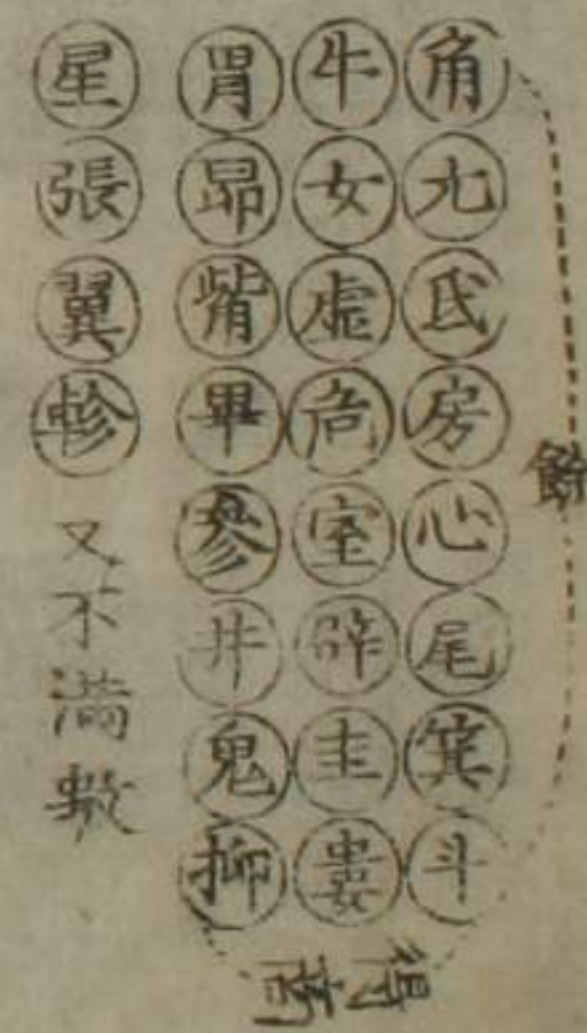 餘
角亢氐房心尾箕斗
牛女虛危室辟圭婁
胃昴觜畢參井鬼柳
得商
星張翼軫又不滿數